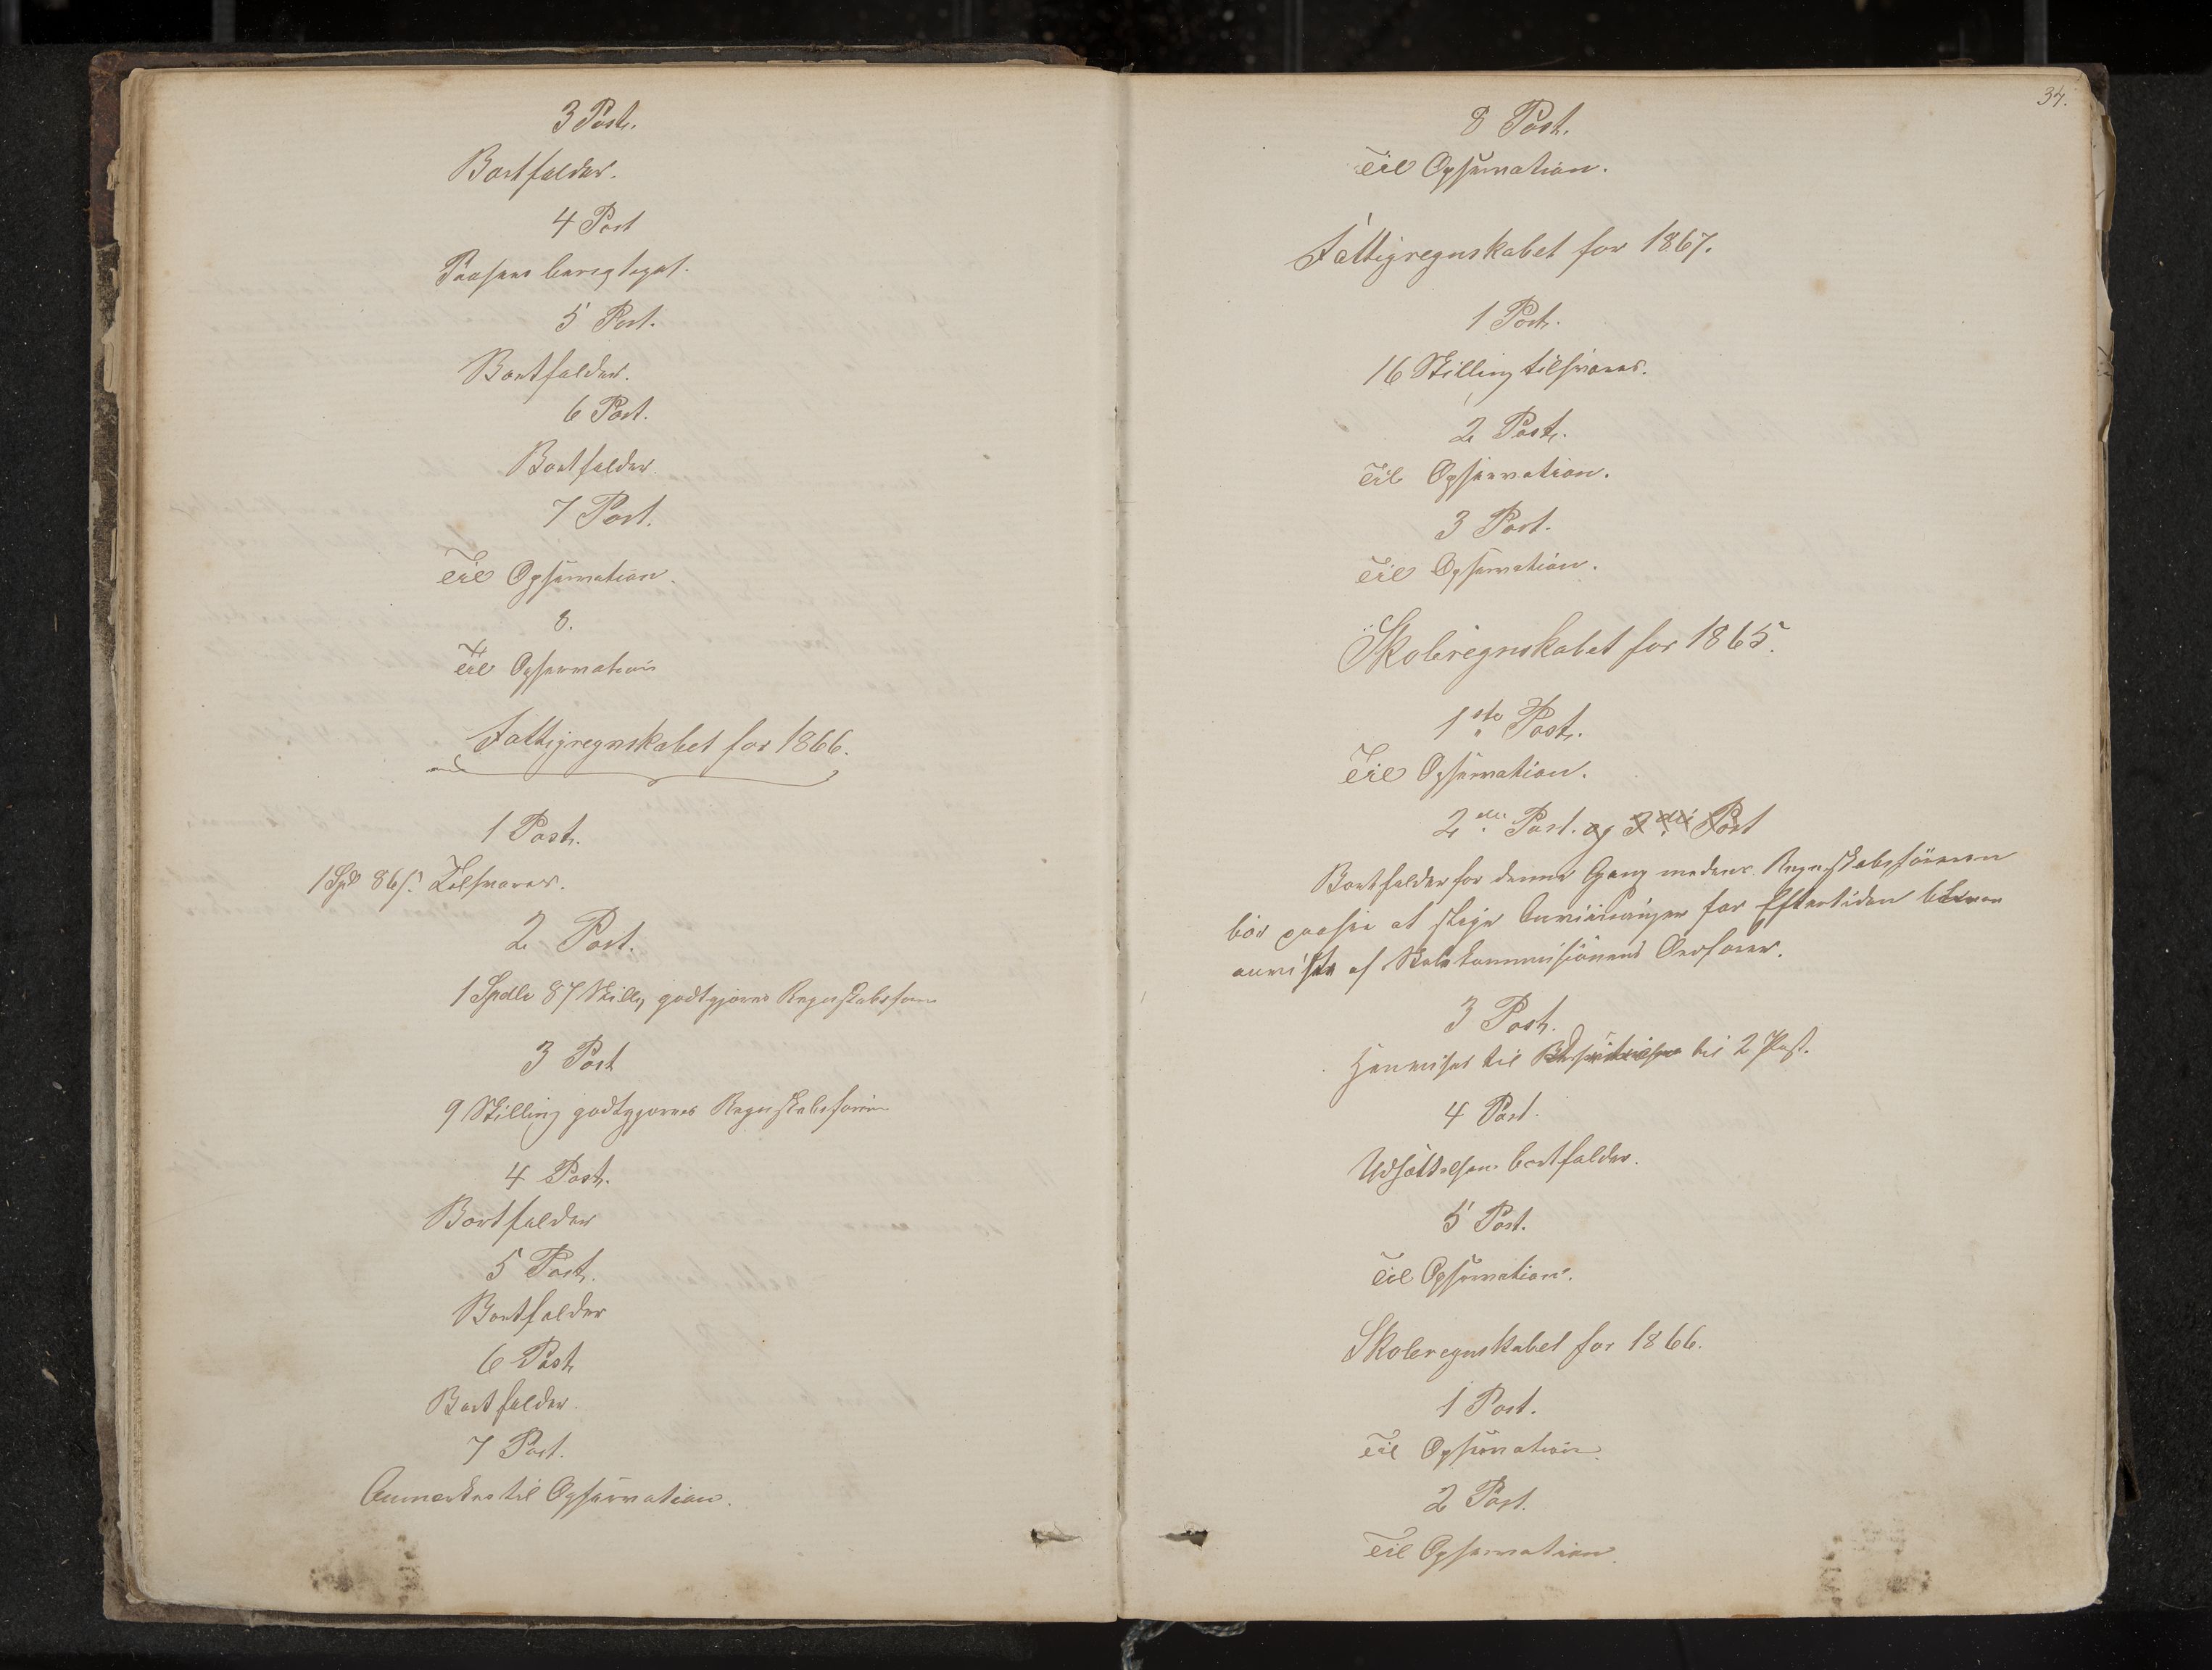 3 Post.
Bortfalder.
4 Post
Paasees berigtiget.
5 Post.
Bortfalder.
6 Post.
Bortfalder.
7 Post.
Til Opservation.
8.
Til Opservation
Fattigregnskabet for 1866.
1 Post.
1 Spd 86 s. Tilsvares.
2 Post.
1 Spdlr 87 Skillg godtgjøres Regnskabsfører
3 Post
9 Skilling godtgjøres Regnskabsfører
4 Post.
Bortfalder
5 Post.
Bortfalder
6 Post
Bortfalder.
7 Post.
Anmerkes til Opservation.
34.
8 Post.
Til Opservation.
Fattigregnskabet for 1867.
1 Post.
16 Skilling tilsvares.
2 Post.
Til Opservation.
3 Post.
Til Opservation.
Skoleregnskabet for 1865.
1ste Post.
Til Opservation.
2den Post. og 3die Post
Bortfalder for denne Gang medens Regnskabsføreren
bør paasee at slige Anviisninger for Eftertiden
anviste af Skolekommisionens Ordfører.
3 Post.
Henvises til til 2 Post.
4 Post.
Udsættelsen bortfalder.
5 Post.
Til Opservation.
Skoleregnskabet for 1866.
1 Post.
Til Opservation.
2 Post.
Til Opservation.